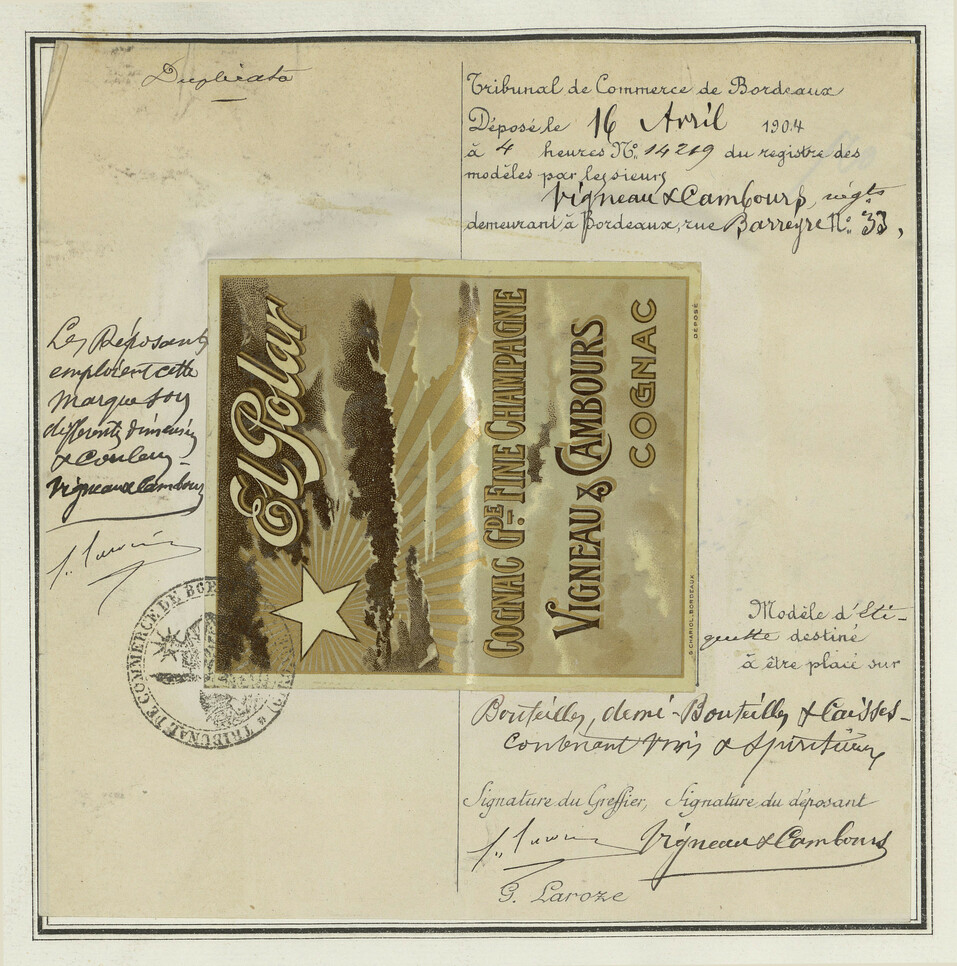 Duplicata
Tribunal de Commerce de Bordeaux
Déposé le 16 Avril 1904
à 4 heures N° 14219 du registre des
modèles par les sieurs
Vigneau & Cambours, négts
demeurant à Bordeaux, rue Barreyre N° 33,
Les Déposants
emploient cette
marque sous
différents dimensions
& couleurs -
Vigneau & Cambours
El Polar
COGNAC GDE FINE CHAMPAGNE
VIGNEAU & CAMBOURS
COGNAC
DÉPOSÉ
G. CHARIOL, BORDEAUX
TRIBUNAL DE COMMERCE DE BOR
Modèle d'Eti-
quette destiné
à être placé sur
Bouteilles, demi-Bouteilles & Caisses -
contenant vins & spiritueux
Signature du Greffier, Signature du déposant
Vigneau & Cambours
G. Laroze